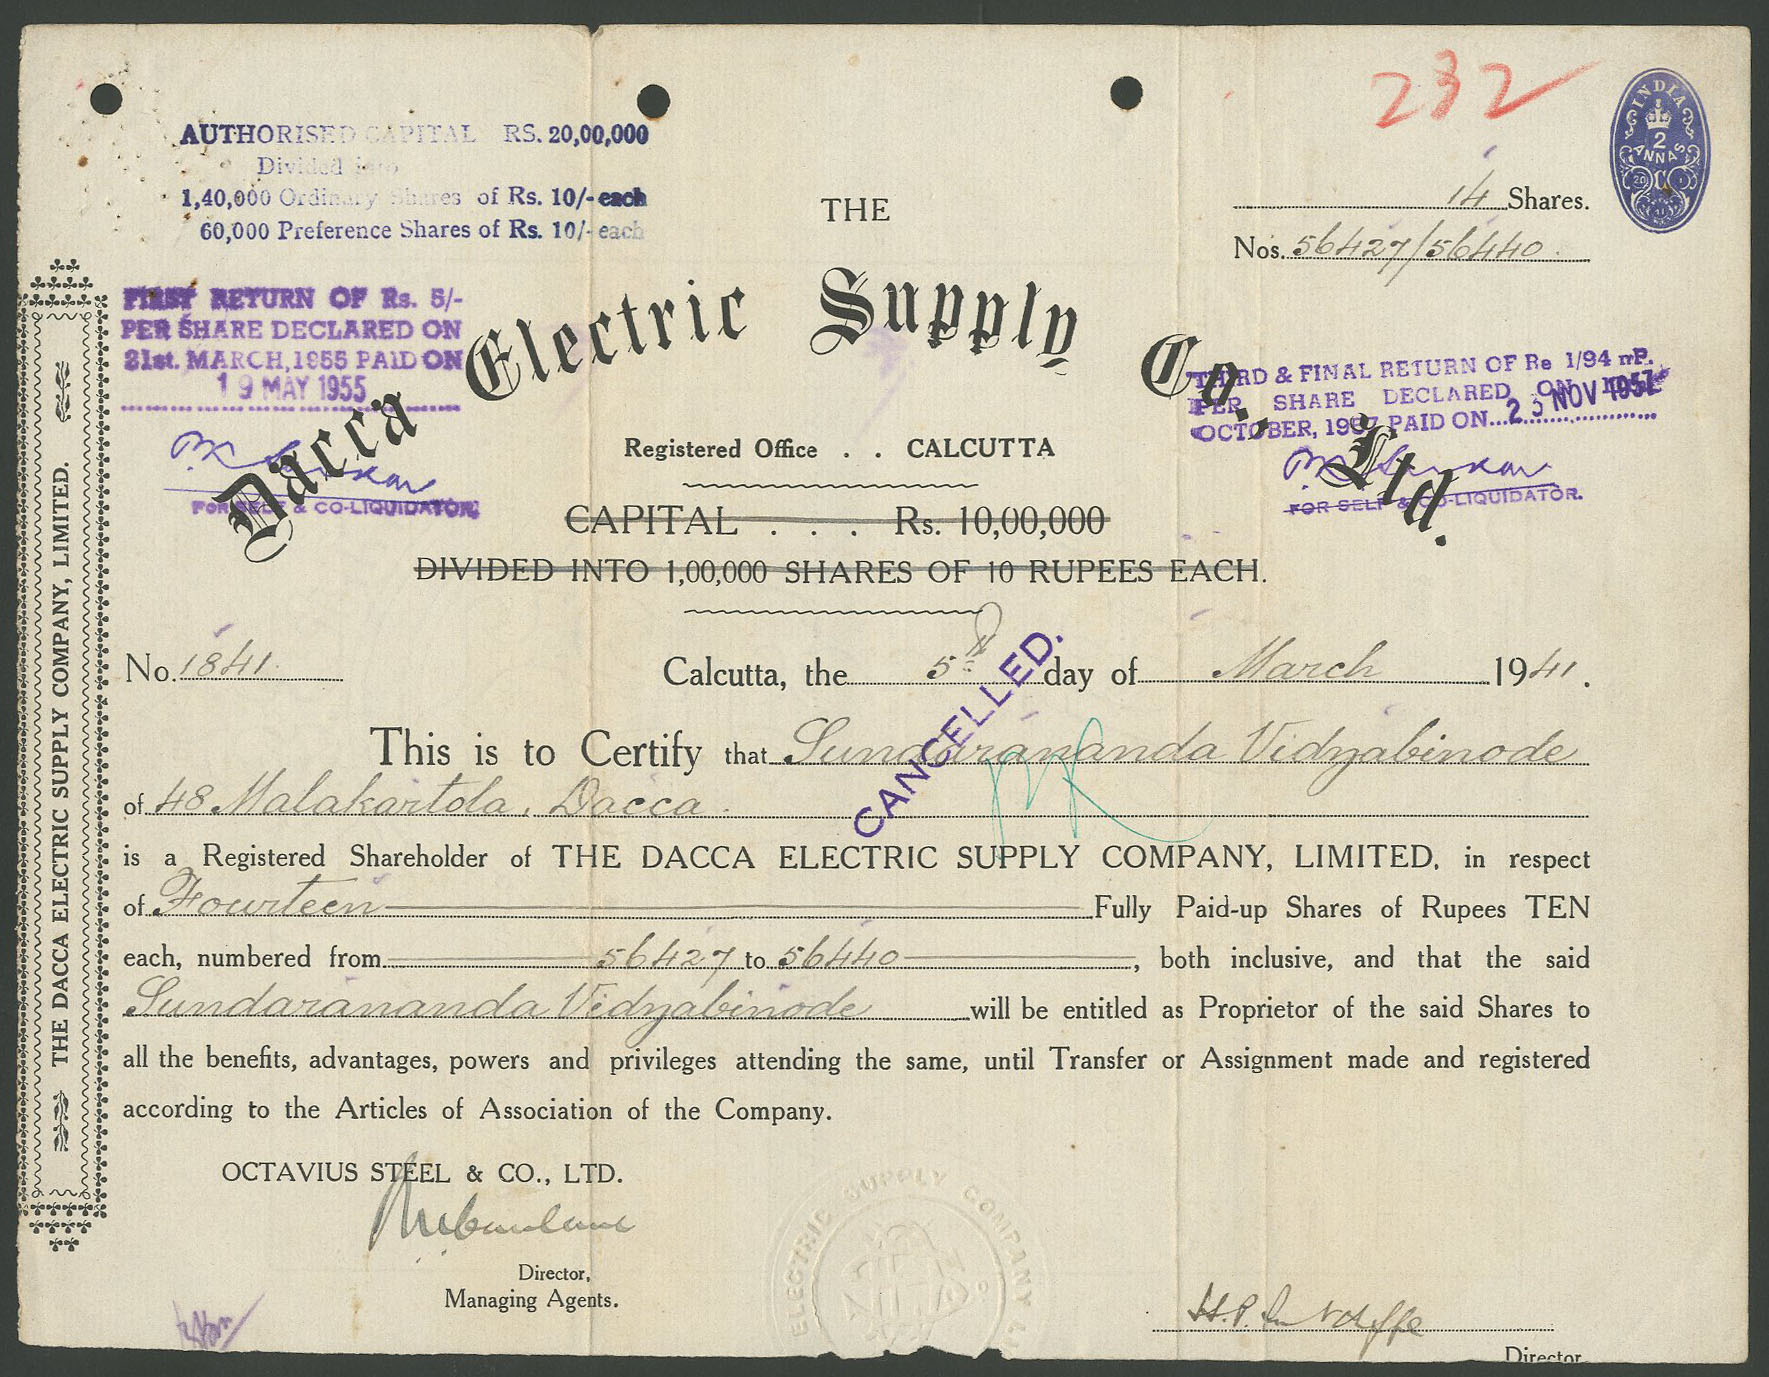 232
INDIA
2
ANNAS
AUTHORISED CAPITAL RS. 20,00,000
Divided into
1,40,000 Ordinary Shares of Rs. 10/- each
60,000 Preference Shares of Rs. 10/- each
14 Shares.
Nos. 56427/56440.
THE
Dacca Electric Supply Co., Ltd.
FIRST RETURN OF Rs. 5/-
PER SHARE DECLARED ON
31st. MARCH, 1955 PAID ON
19 MAY 1955
FOR SELF & CO-LIQUIDATOR.
THIRD & FINAL RETURN OF Re 1/94 nP.
PER SHARE DECLARED ON
OCTOBER, 1957 PAID ON... 23 NOV 1957
FOR SELF & CO-LIQUIDATOR.
Registered Office . . CALCUTTA
CAPITAL . . . Rs. 10,00,000
DIVIDED INTO 1,00,000 SHARES OF 10 RUPEES EACH.
No. 1841.
Calcutta, the 5th day of March 1941.
CANCELLED.
This is to Certify that Sundarananda Vidyabinode
of 48 Malakartola, Dacca.
is a Registered Shareholder of THE DACCA ELECTRIC SUPPLY COMPANY, LIMITED, in respect
of Fourteen Fully Paid-up Shares of Rupees TEN
each, numbered from 56427 to 56440, both inclusive, and that the said
Sundarananda Vidyabinode will be entitled as Proprietor of the said Shares to
all the benefits, advantages, powers and privileges attending the same, until Transfer or Assignment made and registered
according to the Articles of Association of the Company.
OCTAVIUS STEEL & CO., LTD.
Director,
Managing Agents.
ELECTRIC SUPPLY COMPANY L
Director
THE DACCA ELECTRIC SUPPLY COMPANY, LIMITED.